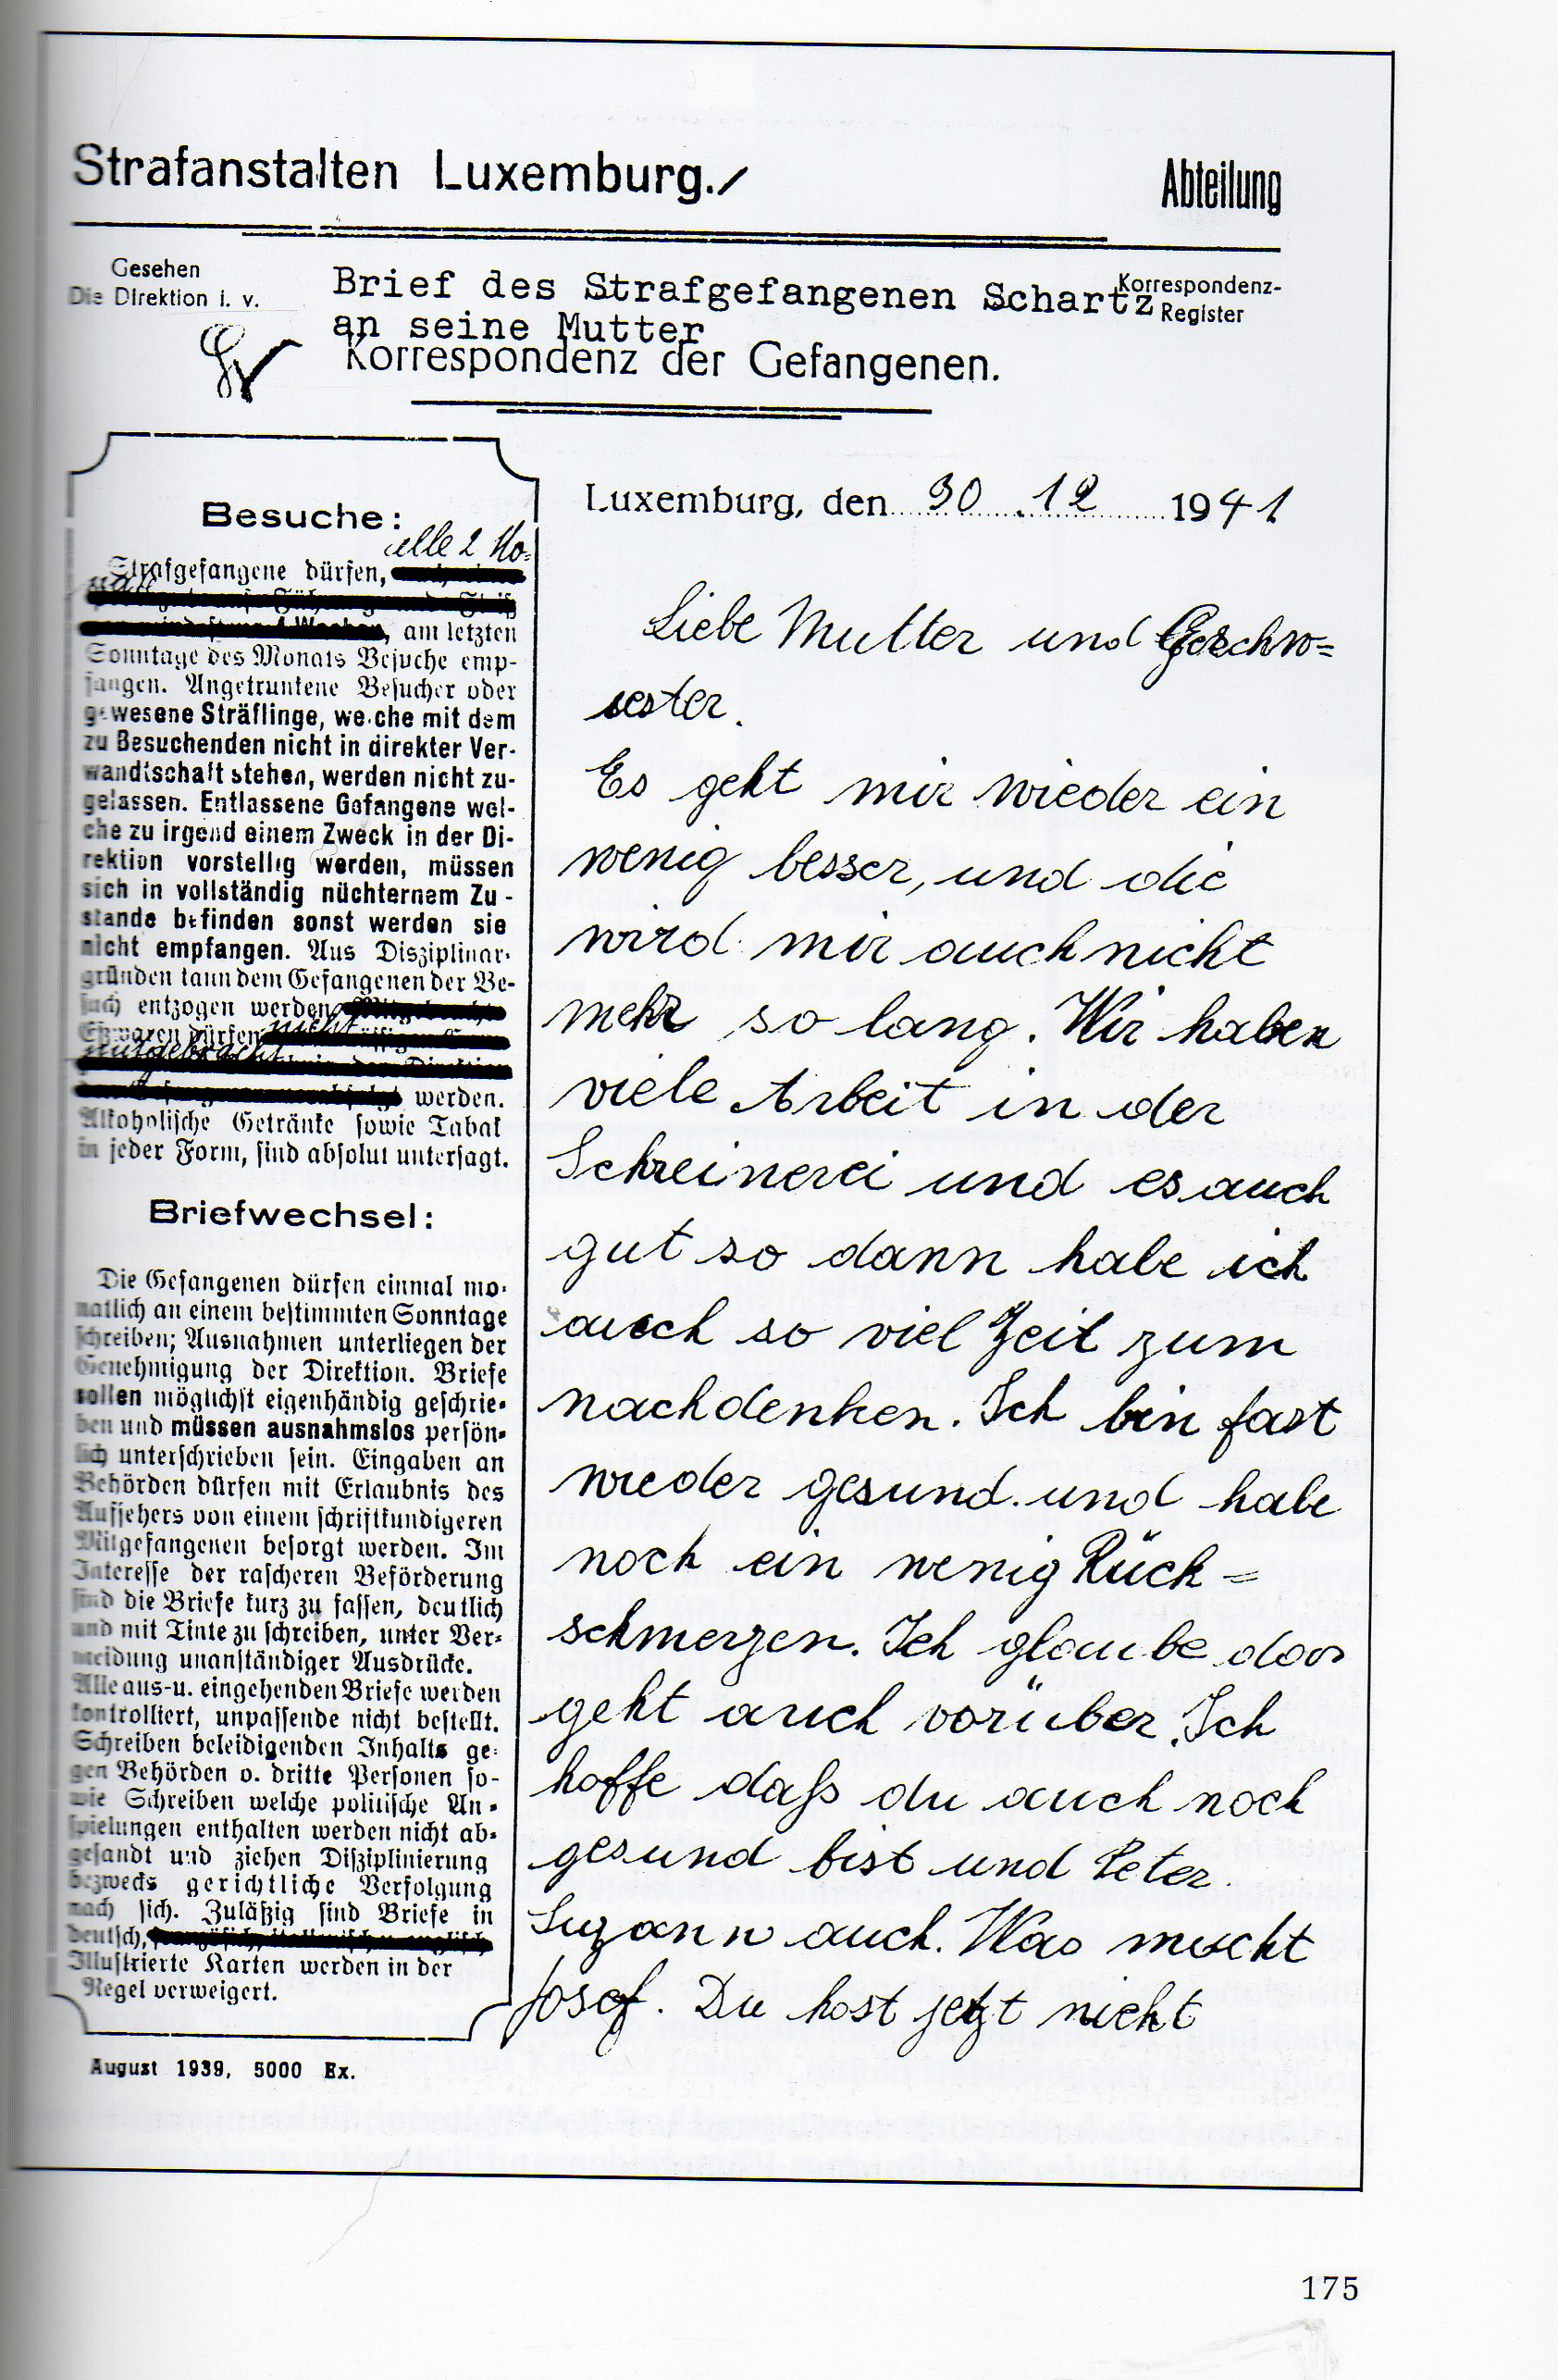 Strafanstalten Luxemburg./
Abteilung
Gesehen
Die Direktion i. v.
Brief des Strafgefangenen Schartz
an seine Mutter
Korrespondenz-
Register
Korrespondenz der Gefangenen.
Besuche:
alle 2 Mo=
Strafgefangene dürfen,
nate
, am letzten
Sonntage des Monats Besuche emp-
fangen. Angetrunkene Besucher oder
gewesene Sträflinge, welche mit dem
zu Besuchenden nicht in direkter Ver-
wandtschaft stehen, werden nicht zu-
gelassen. Entlassene Gefangene wel-
che zu irgend einem Zweck in der Di-
rektion vorstellig werden, müssen
sich in vollständig nüchternem Zu-
stande befinden sonst werden sie
nicht empfangen. Aus Disziplinar-
gründen kann dem Gefangenen der Be-
such entzogen werden
Eßwaren dürfen nicht
mitgebracht
werden.
Alkoholische Getränke sowie Tabak
in jeder Form, sind absolut untersagt.
Briefwechsel:
Die Gefangenen dürfen einmal mo-
natlich an einem bestimmten Sonntage
schreiben; Ausnahmen unterliegen der
Genehmigung der Direktion. Briefe
sollen möglichst eigenhändig geschrie-
ben und müssen ausnahmslos persön-
lich unterschrieben sein. Eingaben an
Behörden dürfen mit Erlaubnis des
Aufsehers von einem schriftkundigeren
Mitgefangenen besorgt werden. Im
Interesse der rascheren Beförderung
sind die Briefe kurz zu fassen, deutlich
und mit Tinte zu schreiben, unter Ver-
meidung unanständiger Ausdrücke.
Alle aus-u. eingehenden Briefe werden
kontrolliert, unpassende nicht bestellt.
Schreiben beleidigenden Inhalts ge-
gen Behörden o. dritte Personen so-
wie Schreiben welche politische An-
spielungen enthalten werden nicht ab-
gesandt und ziehen Disziplinierung
bezwecks gerichtliche Verfolgung
nach sich. Zuläßig sind Briefe in
deutsch,
Illustrierte Karten werden in der
Regel verweigert.
August 1939, 5000 Ex.
Luxemburg, den 30.12 1941
Liebe Mutter und Geschw=
uester.
Es geht mir wieder ein
wenig besser, und die
wird mir auch nicht
mehr so lang. Wir haben
viele Arbeit in der
Schreinerei und es auch
gut so dann habe ich
auch so viel Zeit zum
nachdenken. Ich bin fast
wieder gesund. und habe
noch ein wenig Rück=
schmerzen. Ich glaube das
geht auch vorüber. Ich
hoffe daß du auch noch
gesund bist und Peter.
Suzann auch. Was mscht
Josef. Du hast jetzt nicht
175